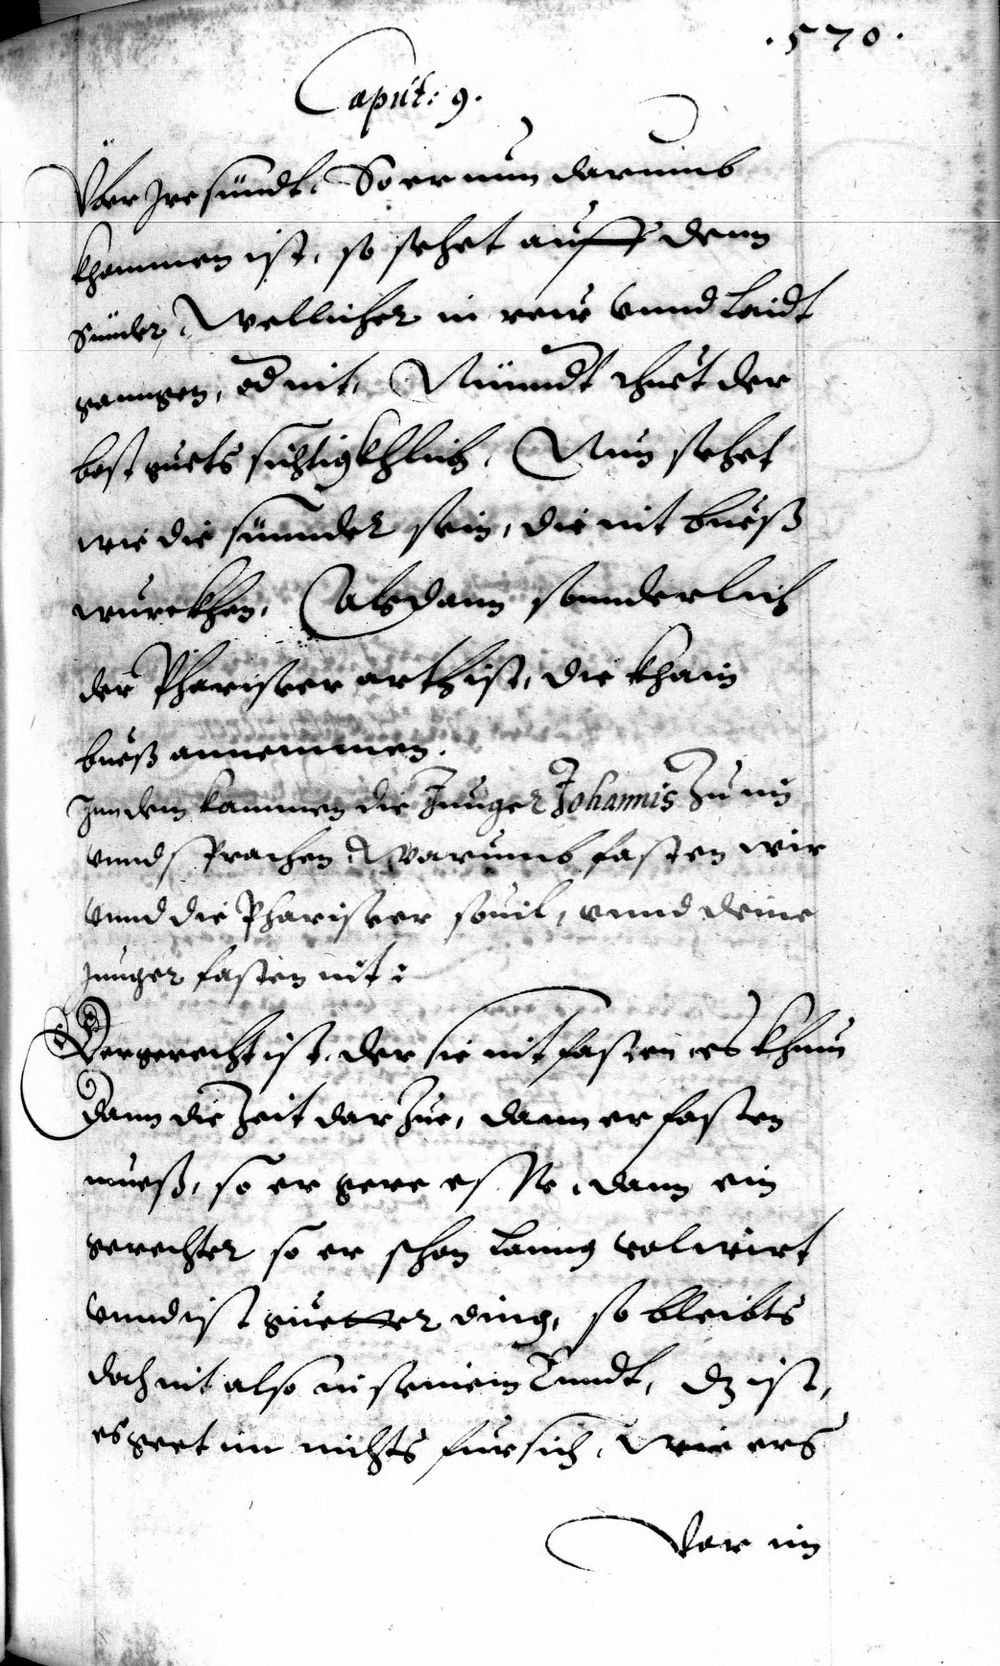 .570.
Caput: 9.
Vber Ire sündt. So er nun darumb
khommen ist, so sehet auff denn
Sünder, Wellicher in rew vnnd Laidt
ganngen, od nit, Niemdt thuet der
best guets sichtigkhlich. Nun sehet
wie die sünnder sein, die nit bueß
wurckhen. Alsdann sonnderlich
der Phariseer arth ist, die khain
bueß annemmen.
Inn dem kammen die Junnger Johannis zu im
vnnd sprachen Warumb fasten wir
vnnd die Phariseer souil, vnnd deine
Junnger fasten nit:
Der gerecht ist, der sie nit fasten es khum
dann die Zeit dar Zue, dann er fasten
mueß, so er gere esse, dann ein
gerechter so er schon lanng
vnnd ist guetter ding, so bleibts
doch nit also in seinem Stanndt, dz ist,
es geet im nichts für sich, Wie ers
Vor im